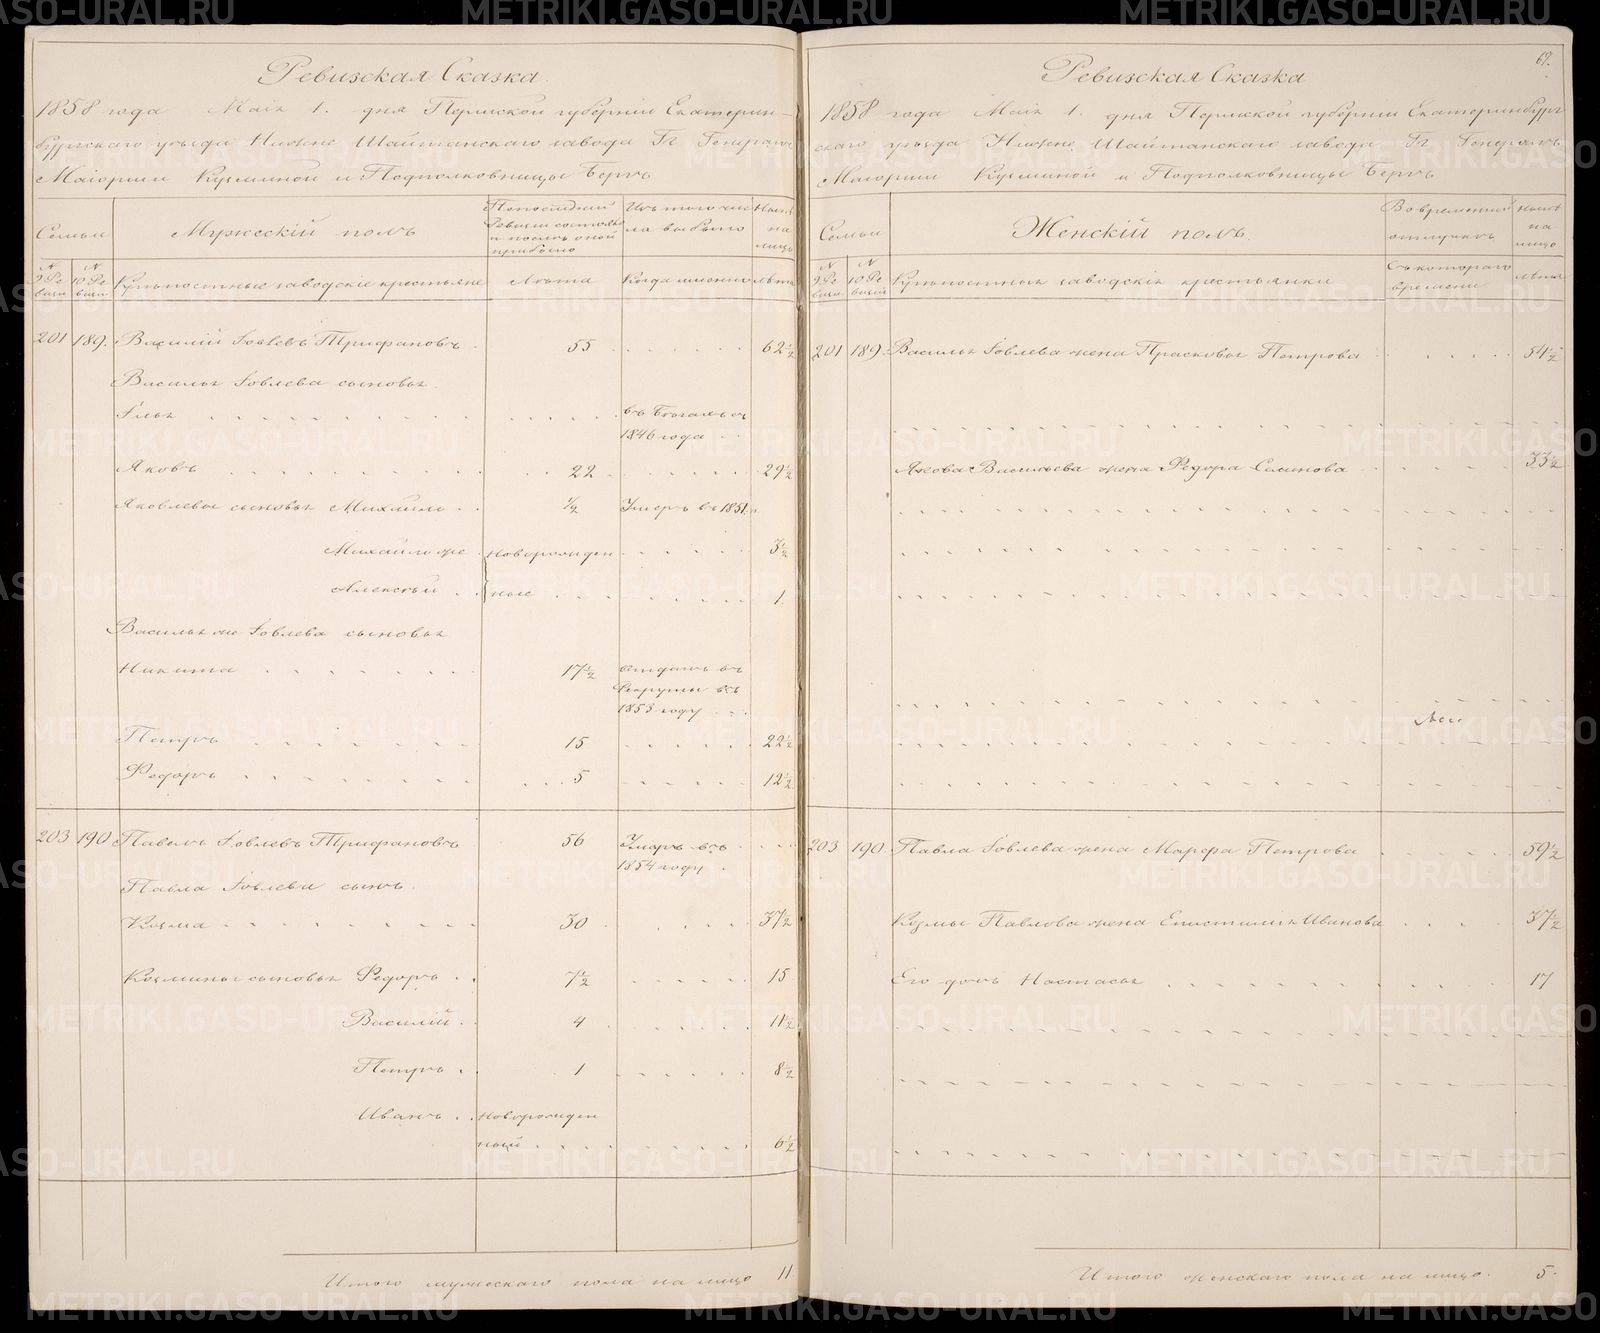 Ревизская Сказка.
1858 года Маія 1. дня Пермской губерніи Екатерин-
бургскаго уѣзда Нижне Шайтанскаго завода Гг Генералъ
Маіорши Кузьминой и Подполковницы Бергъ
Семьи
Мужескій полъ
Послѣдней Ревизіи состояло и послѣ оной прибыло
Изъ того числа выбыло
Нынѣ на лицо
№ 9 Ревизіи
№ 10 Ревизіи
Крѣпостные заводскіе крестьяне
Лѣта
Когда именно
Лѣта
201 189. Василій Іовлевъ Трифановъ 55 62½
Василья Іовлева сыновья
Илья въ бѣгахъ съ
1846 года
Яковъ 22 29½
Яковлевы сыновья Михайло ½ Умеръ въ 1851.
Михайло же Новорожден 3½
Алексѣй ные 1
Василья же Іовлева сыновья
Никита 17½ отданъ въ
Рекруты въ
1853 году
Петръ 15 22½
Федоръ 5 12½
203 190 Павелъ Іовлевъ Трифановъ 56 Умеръ въ
1854 году
Павла Іовлева сынъ
Козма 30 37½
Козмины сыновья Федоръ 7½ 15
Василій 4 11½
Петръ 1 8½
Иванъ Новорожден
ный 6½
Итого мужескаго пола на лицо 11
67.
Ревизская Сказка
1858 года Маія 1. дня Пермской губерніи Екатеринбург
скаго уѣзда Нижне Шайтанскаго завода Гг Генералъ
Маіорши Кузьминой и Подполковницы Бергъ
Семьи
Женскій полъ.
Во временной отлучкѣ
Нынѣ на лицо
№ 9 Ревизіи
№ 10 Ревизіи
Крѣпостныя заводскія крестьянки
Съ котораго времени
Лѣта
201 189. Василья Іовлева жена Прасковья Петрова 54½
Якова Васильева жена Федора Семенова 33½
203 190. Павла Іовлева жена Марфа Петрова 59½
Кузмы Павлова жена Епистимія Иванова 37½
Его дочь Настасья 17
Итого женскаго пола на лицо. 5.
METRIKI.GASO-URAL.RU